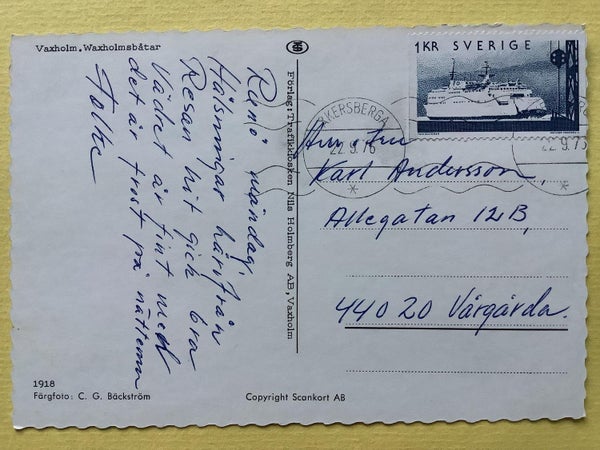 Vaxholm. Waxholmsbåtar
Remö måndag.
Hälsningar härifrån
Resan hit gick bra
Vädret är fint med
det är frost på nätterna
Folke
Förlag: Trafikkiosken Nils Holmberg AB, Vaxholm
1 KR SVERIGE
KERSBERGA
22.9.76
22.9.76
Hrr. Fru
Karl Andersson,
Allegatan 12B,
44020 Vårgårda.
1918
Färgfoto: C. G. Bäckström
Copyright Scankort AB